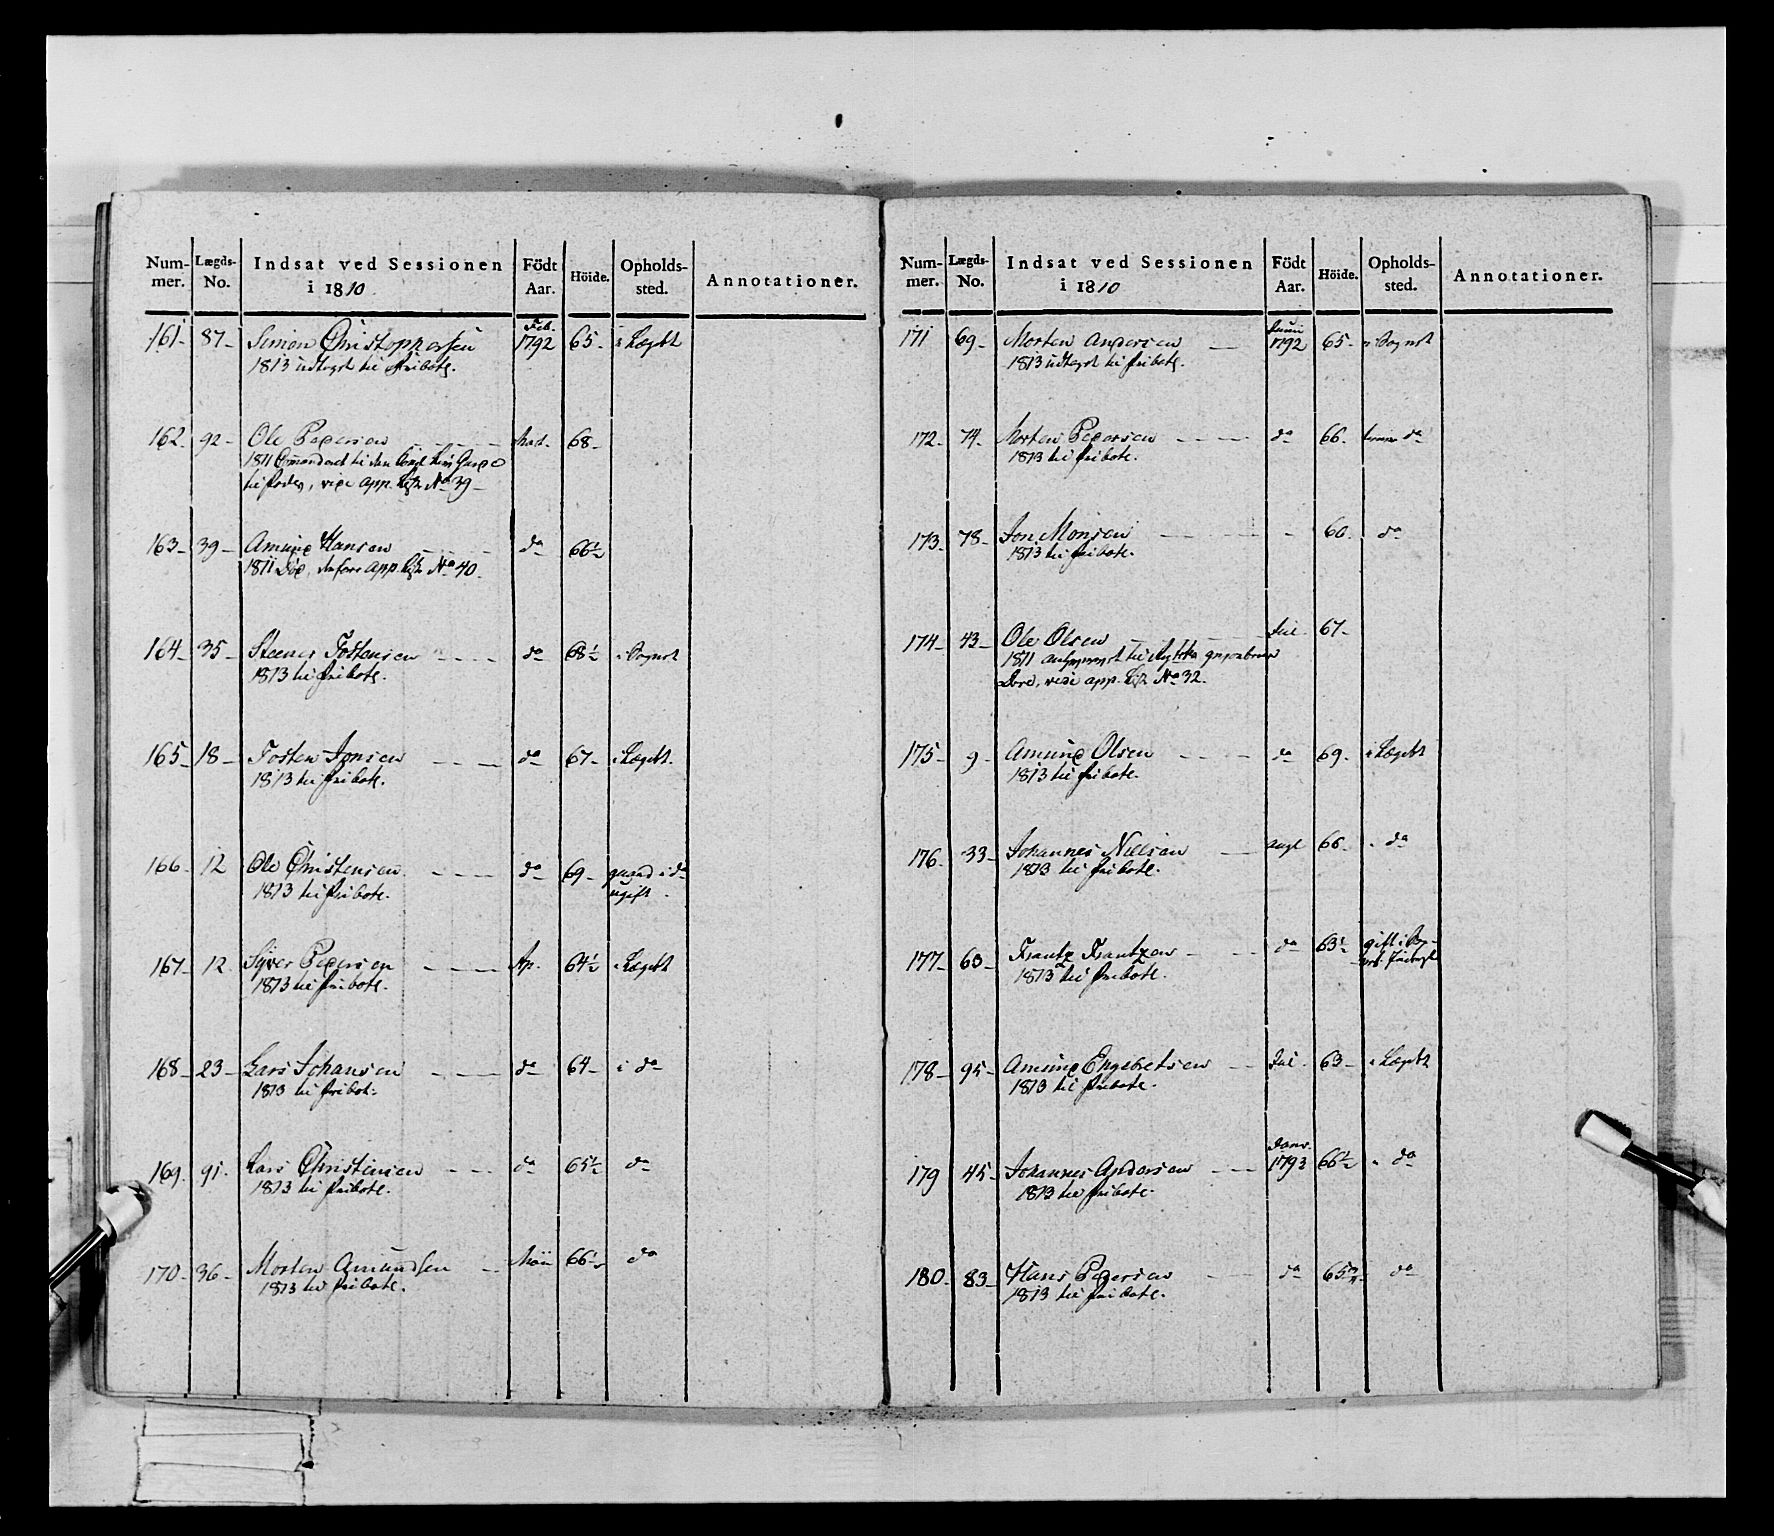 Num- Lægds- Indsat ved Sessionen Födt Höide. Opholds- Annotationer.
mer. No. i 1810. Aar. sted.
161- 87- Simon Christophersen Feb. 1792 65- i Lægdt
1813 udtagst til fribatl.
162- 92- Ole Pedersen 68-
1811 Comanderet til den Garde
vide app. No 39-
163- 39- Amund Hansen do 66½
1811 Död, app. No 40.
164- 35- Steener Tostensen do 68½ i Sognet
1813 til fribatl.
165- 18- Tosten Jonsen do 67- i Lægdt.
1813 til fribatl.
166- 12 Ole Christensen do 69- i do
1813 til fribatl. ugift.
167- 12. Syver Pedersen Ap. 64½ i Lægdt
1813 til fribatl.
168- 23- Lars Johansen do 64- i do
1813 til fribat.
169. 91. Lars Christensen do 65½ do
1813 til fribatl.
170- 36- Morten Amundsen 66½ do
1813 til fribatl.
Num- Lægds- Indsat ved Sessionen Födt Höide. Opholds- Annotationer.
mer. No. i 1810 Aar. sted.
171 69- Morten Andersen Juni 1792 65- i Sognet
1813 udtagst til fribatl.
172- 74- Morten Pedersen do 66. do
1813 til fribatl.
173- 78- Jon Monsen - 60. do
1813 til fribatl.
174- 43- Ole Olsen Jul. 67-
1811 til
vide app. No 32.
175- 9- Amund Olsen do 69. i Lægdt
1813 til fribatl.
176- 33- Johannes Nielsen Augt 66- do
1813 til fribatl.
177- 60- Frantz Frantzen do 63½ gift i
1813 til fribatl.
178- 95- Amund Engebretsen Jul. 63- i Lægdt
1813 til fribatl.
179 45- Johannes Andersen Janv. 1793 66½ do
1813 til fribatl.
180- 83- Hans Pedersen do 65¾ do
1813 til fribatl.